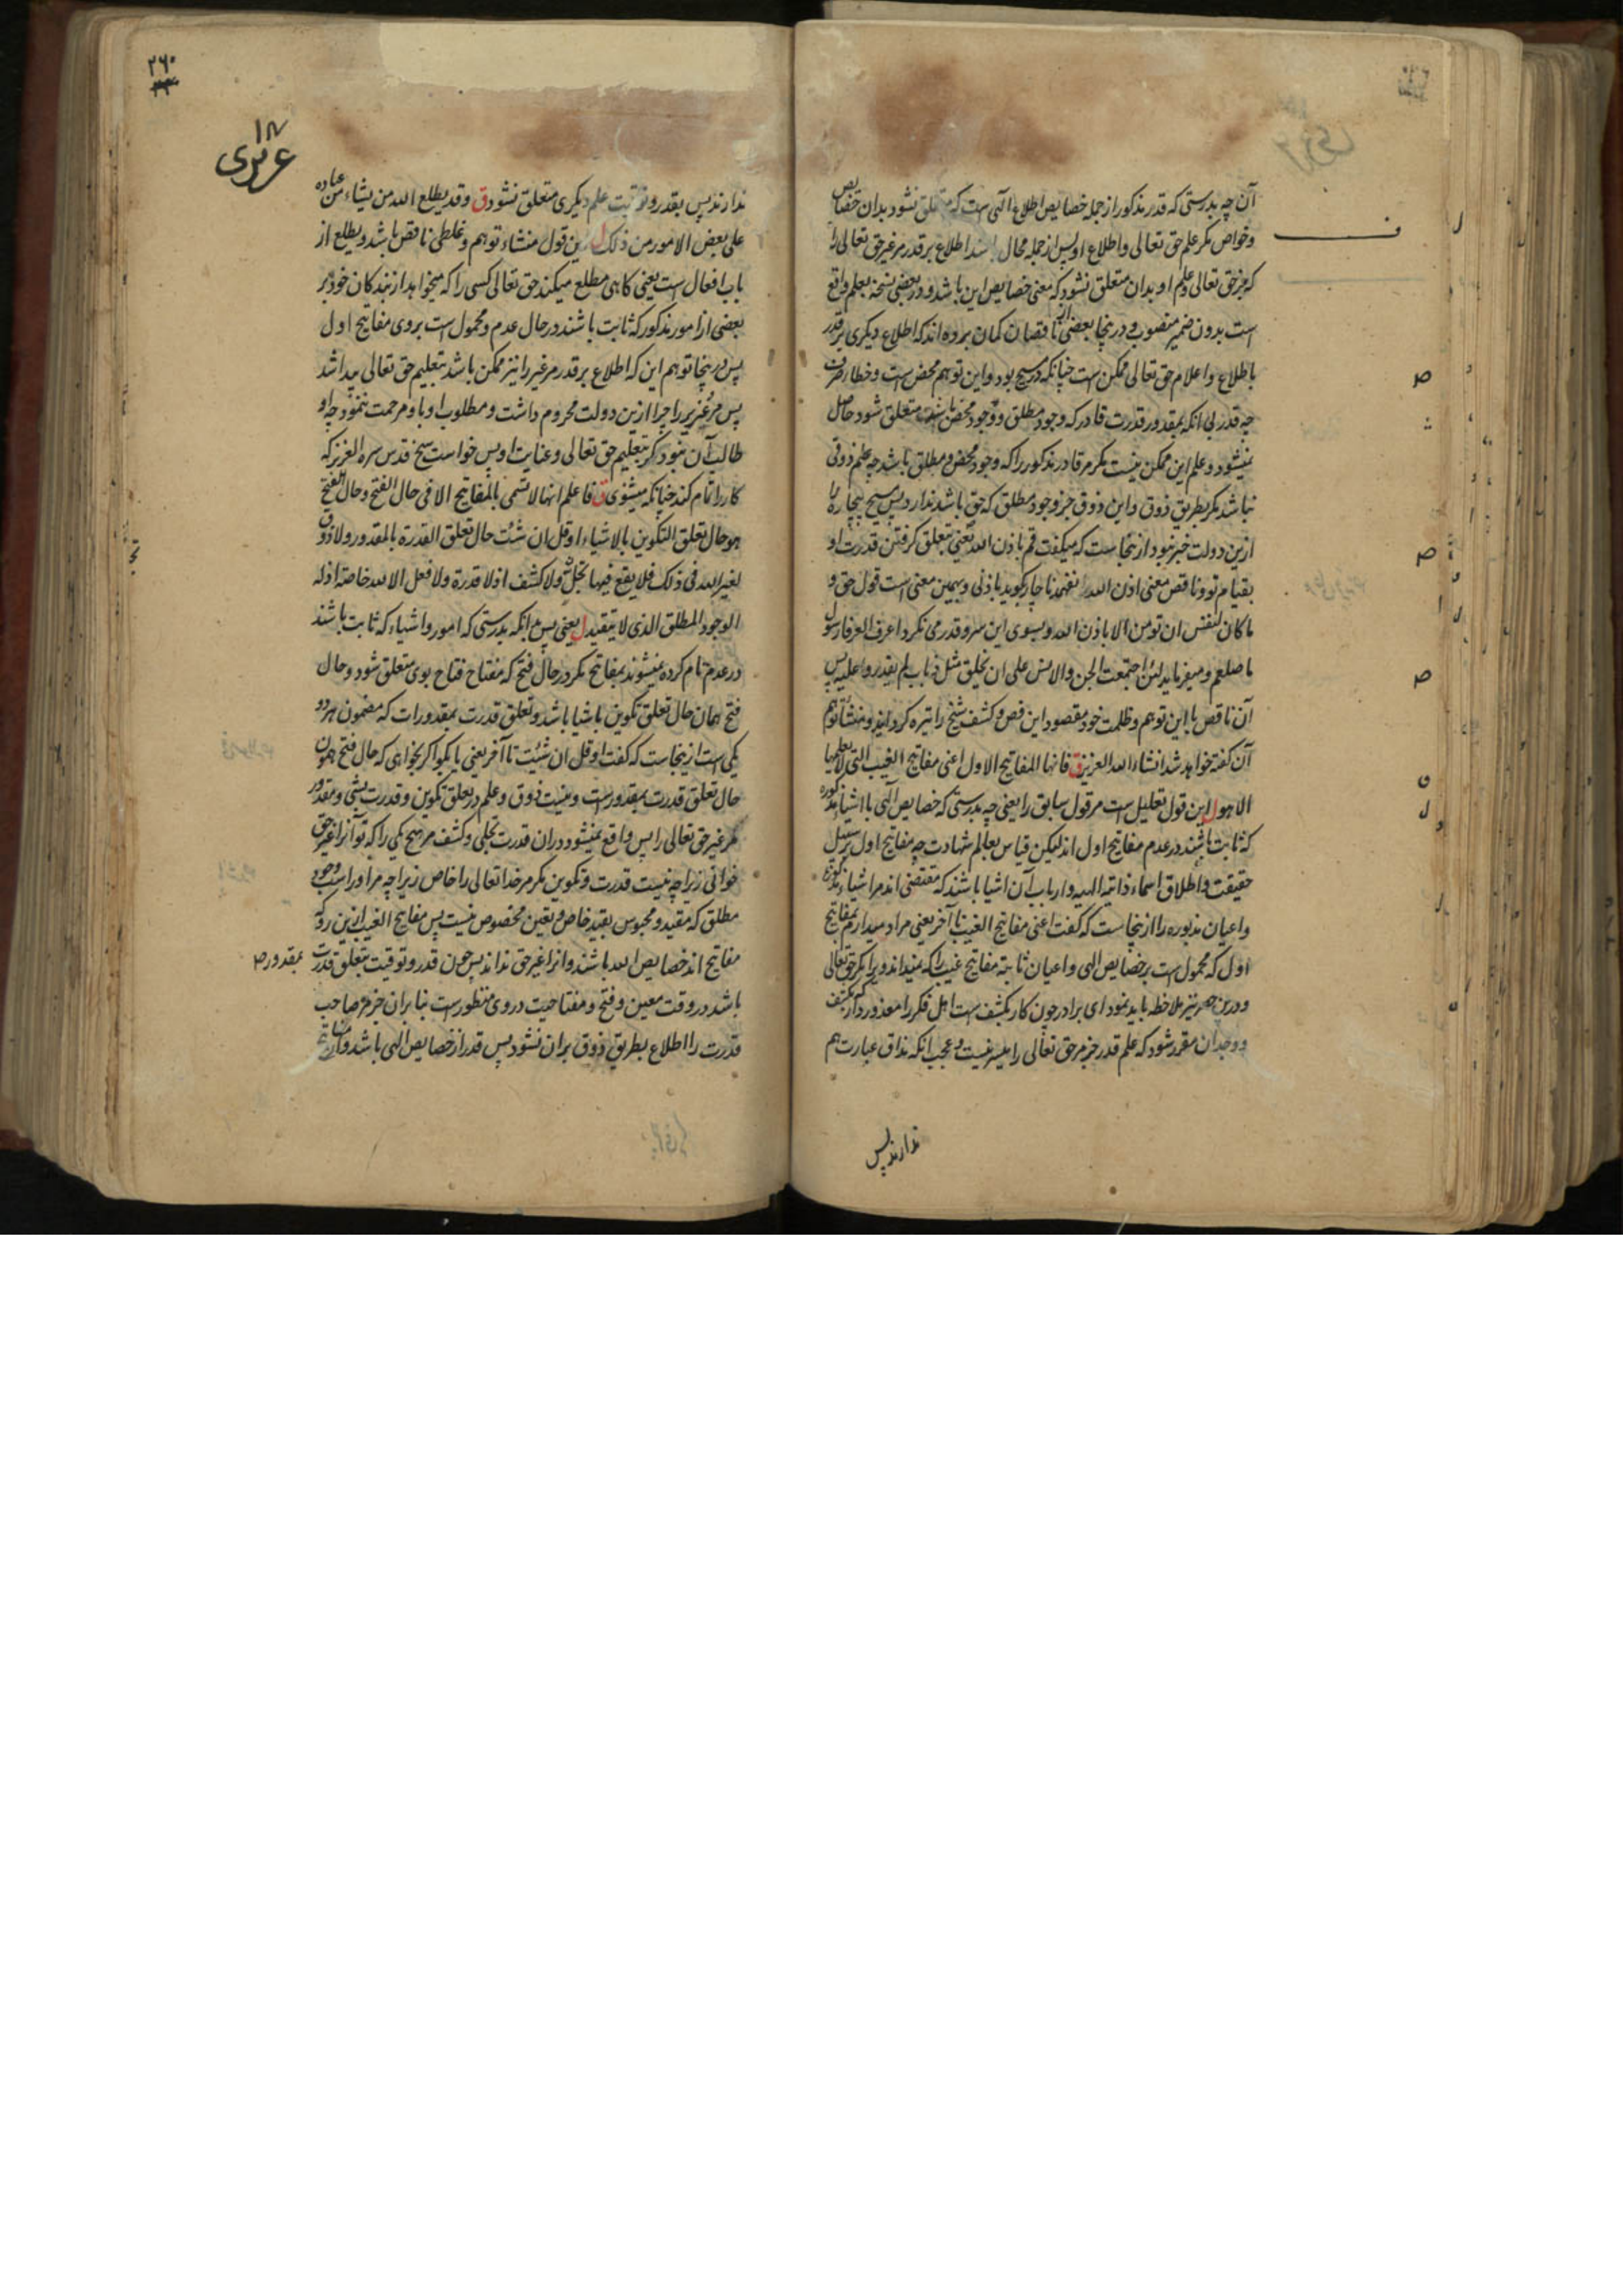 آن چه بدرستی که قدر مذکور از جمله خصایص اطلاع الهی است که متعلق نشود بدان خصایص
و خواص مکر علم حق تعالی و اطلاع او پس از جمله محال باشد اطلاع بر قدر مر غیر حق تعالی را
که جز حق تعالی و علم او بدان متعلق نشود که معنی خصایص این باشد و در بعضی نسخه بعلم واقع
است بدون ضمیر منصوب و درینجا بعضی از ناقصان کمان برده اند که اطلاع دیکری بر قدر
باطلاع و اعلام حق تعالی ممکن است چنانکه در مسیح بود و این توهم محض است و خطا
چه قدر بی انکه بمقدور قدرت قادر که وجود مطلق و وجود محض باشد متعلق شود حاصل
نمیشود و علم این ممکن نیست مکر مر قادر مذکور را که وجود محض و مطلق باشد چه علم ذوقی
نباشد مکر بطریق ذوق و این ذوق جز وجود مطلق که حق باشد ندارد پس مسیح بیچاره را
ازین دولت خبر نبود ازینجا است که میکفت قم باذن الله یعنی بتعلق کرفتن قدرت او
بقیام تو و ناقص معنی اذن الله نفهمد ناچار بکوید باذنی و بهمین معنی است قول حق و
ما کان لنفس ان تومن الا باذن الله و بسوی این سر و قدر می نکرد اعرف العرفا رسول
ما صلعم و میفرماید لئن اجتمعت الجن والانس علی ان یخلق مثل ذباب لم یقدروا علیه پس
آن ناقص با این توهم و ظلمت خود مقصود این فص و کشف شیخ را تیره کردانید و منشأ توهم
آن کفته خواهد شد انشاء الله العزیز ق فانها المفاتیح الاول اعنی مفاتیح الغیب التی لا یعلمها
الا هو ل این قول تعلیل است مر قول سابق را یعنی چه بدرستی که خصایص الهی با اشیاء مذکوره
که ثابت باشند در عدم مفاتیح اول اند لیکن قیاس بعالم شهادت چه مفاتیح اول بر سبیل
حقیقت و اطلاق اسماء ذاتیه الهیه و ارباب آن اشیا باشند که مقتضی اند مر اشیاء مذکوره
و اعیان مذبوره را ازینجا است که کفت اعنی مفاتیح الغیب تا آخر یعنی مراد میدارم بمفاتیح
اول که محمول است بر خصایص الهی و اعیان ثابته مفاتیح غیب را که نمیداند ویرا مکر حق تعالی
و درین حصر نیز ملاحظه باید نمود ای برادر چون کار بکشف است اهل فکر را معذور دار که بکشف
و وجدان مقرر شود که علم قدر جز مر حق تعالی را میسر نیست و عجب انکه مذاق عبارت هم
ندارند پس
۲۶۰
۱۸
عزیزی
ندارند پس بقدر و توقیت علم دیکری متعلق نشود ق و قد یطلع الله من یشاء من عباده
علی بعض الامور من ذلک ل این قول منشاء توهم و غلطی ناقص باشد و یطلع از
باب افعال است یعنی کاهی مطلع میکند حق تعالی کسی را که میخواهد از بندکان خود بر
بعضی از امور مذکور که ثابت باشند در حال عدم و محمول است بر وی مفاتیح اول
پس درینجا توهم این که اطلاع بر قدر مر غیر را نیز ممکن باشد بتعلیم حق تعالی پیدا شد
پس مر عزیر را چرا ازین دولت محروم داشت و مطلوب او با و مرحمت ننمود چه او
طالب آن نبود مکر بتعلیم حق تعالی و عنایت او پس خواست شیخ قدس سره العزیز که
کار را تمام کند چنانکه میشنوی ق فاعلم انها لا تسمی بالمفاتیح الا فی حال الفتح و حال الفتح
هو حال تعلق التکوین بالاشیاء او قل ان شئت حال تعلق القدرة بالمقدور ولا ذوق
لغیر الله فی ذلک فلا یقع فیها تجل ولا کشف اذ لا قدرة ولا فعل الا لله خاصة اذ له
الوجود المطلق الذی لا یتقید ل یعنی پس بدانکه بدرستی که امور و اشیاء که ثابت باشند
در عدم نام کرده نمیشوند بمفاتیح مکر در حال فتح که مفتاح فتاح بوی متعلق شود و حال
فتح همان حال تعلق تکوین باشیا باشد و تعلق قدرت بمقدورات که مضمون هر دو
یکی است ازینجا است که کفت او قل ان شئت تا آخر یعنی یا بکو اکر بخواهی که حال فتح همون
حال تعلق قدرت بمقدور است و نیست ذوق و علم در تعلق تکوین و قدرت بشی و مقدور
مکر غیر حق تعالی را پس واقع نمیشود دران قدرت تجلی و کشف مر هیچ یکی را که تو آنرا غیر حق
خوانی زیرا چه نیست قدرت و تکوین مکر مر خدا تعالی را خاص زیرا چه مر او راست وجود
مطلق که مقید و محبوس بقید خاص و تعین مخصوص نیست پس مفاتیح الغیب ازین رو که
مفاتیح اند خصایص الله باشند و انرا غیر حق نداند پس چون قدر و توقیت بتعلق قدرت
بمقدور صح
باشد در وقت معین و فتح و مفتاحیت در وی منظور است بنابران جز مر صاحب
قدرت را اطلاع بطریق ذوق بران نشود پس قدر از خصایص الهی باشد و